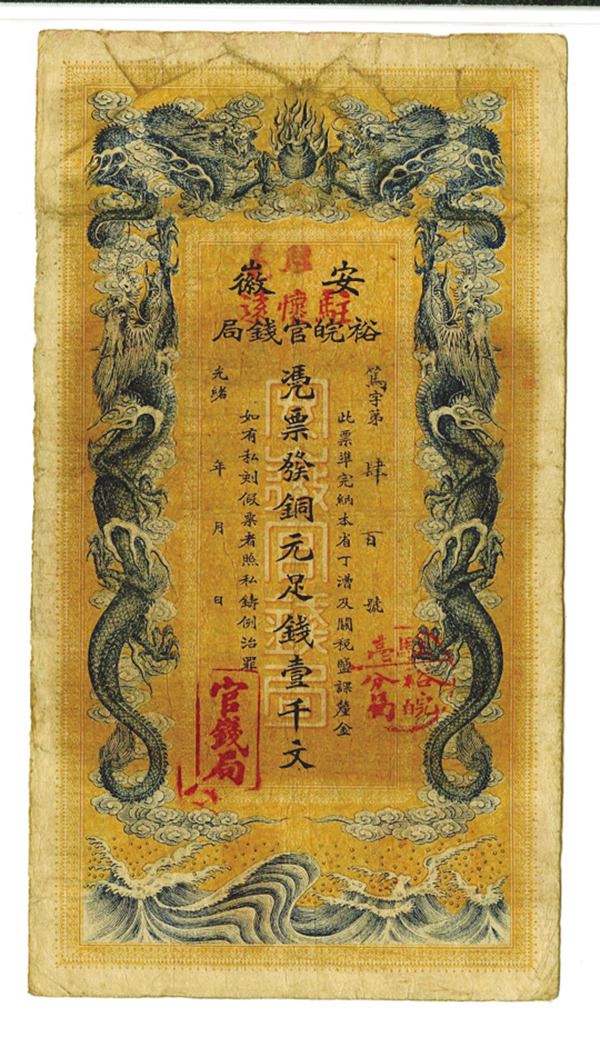 安徽
駐懷遠
裕皖官錢局
篤字第肆百號
此票準完納本省丁漕及關稅鹽課釐金
凴票發銅元足錢壹千文
如有私刻假票者照私鑄例治罪
光緒 年 月 日
裕皖
分局
官錢局